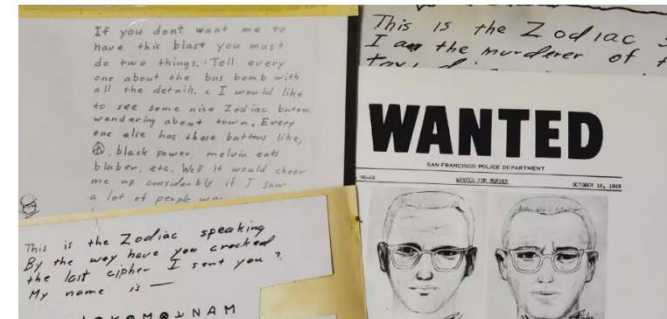 If you dont want me to
have this blast you must
do two things. 1 Tell every
one about the bus bomb with
all the details. 2 I would like
to see some nice Zodiac butons
wandering about town. Every
one else has these buttons like,
black power, melvin eats
blaber, etc. Well it would cheer
me up considerbly if I saw
a lot of people
This is the Zodiac speaking
By the way have you cracked
the last cipher I sent you?
My name is —
NAM
This is the Zodiac
I am the murderer of
WANTED
SAN FRANCISCO POLICE DEPARTMENT
90-69 WANTED FOR MURDER OCTOBER 18, 1969